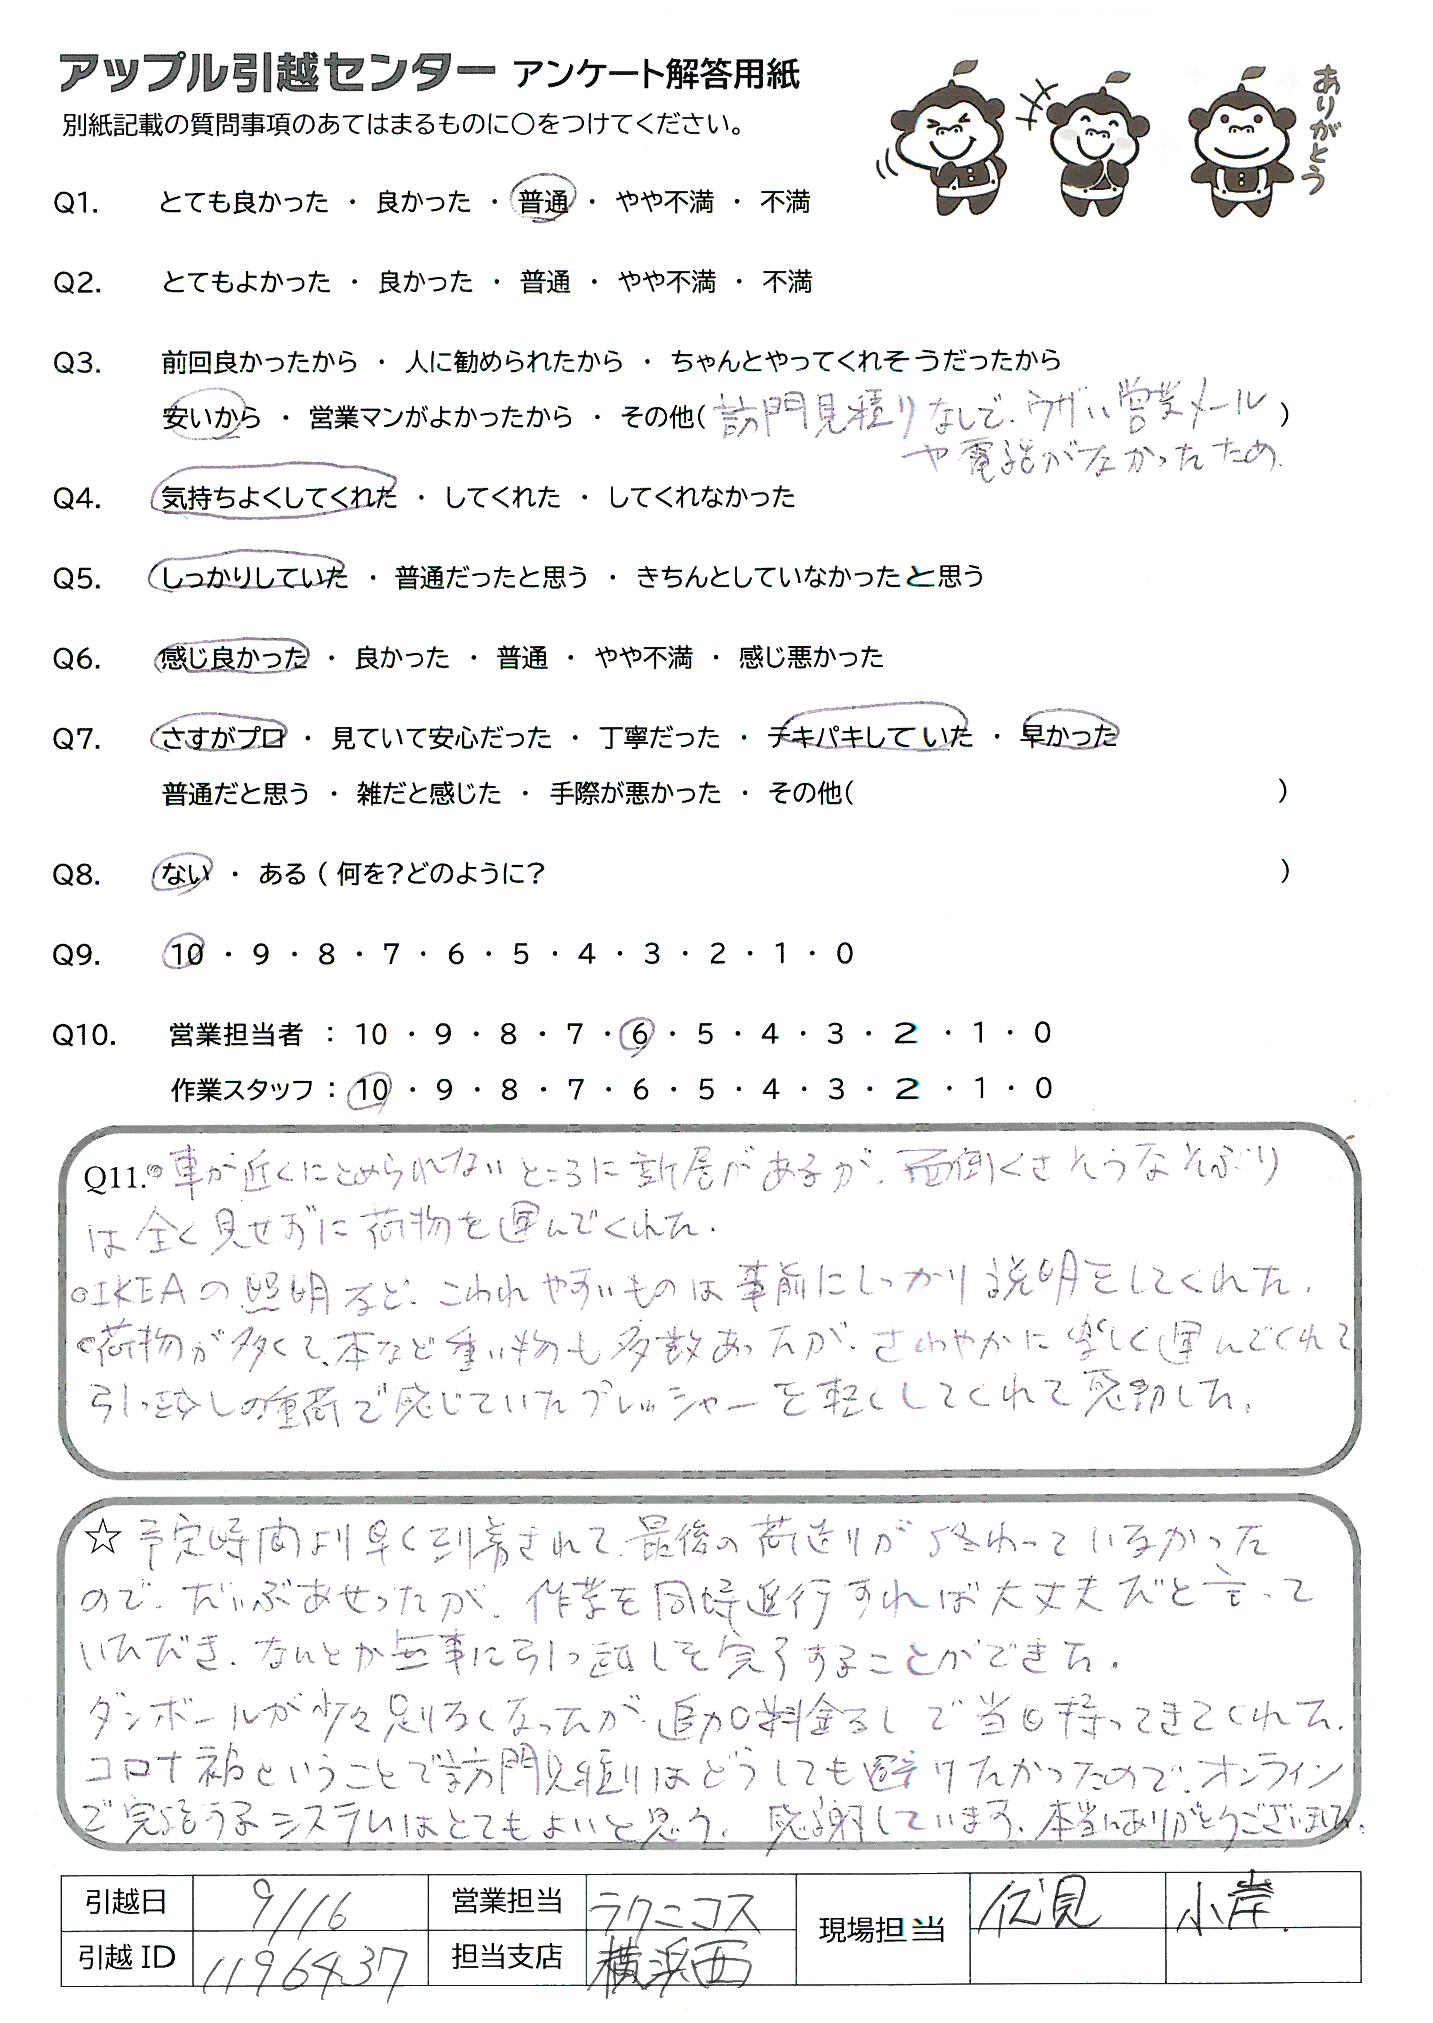 アップル引越センター アンケート解答用紙
ありがとう
別紙記載の質問事項のあてはまるものに〇をつけてください。
Q1. とても良かった ・ 良かった ・ 普通 ・ やや不満 ・ 不満
Q2. とてもよかった ・ 良かった ・ 普通 ・ やや不満 ・ 不満
Q3. 前回良かったから ・ 人に勧められたから ・ ちゃんとやってくれそうだったから
安いから ・ 営業マンがよかったから ・ その他( 訪問見積りなしで、ウザい営業メール )
や電話がなかったため
Q4. 気持ちよくしてくれた ・ してくれた ・ してくれなかった
Q5. しっかりしていた ・ 普通だったと思う ・ きちんとしていなかったと思う
Q6. 感じ良かった ・ 良かった ・ 普通 ・ やや不満 ・ 感じ悪かった
Q7. さすがプロ ・ 見ていて安心だった ・ 丁寧だった ・ テキパキしていた ・ 早かった
普通だと思う ・ 雑だと感じた ・ 手際が悪かった ・ その他( )
Q8. ない ・ ある ( 何を?どのように? )
Q9. 10 ・ 9 ・ 8 ・ 7 ・ 6 ・ 5 ・ 4 ・ 3 ・ 2 ・ 1 ・ 0
Q10. 営業担当者 : 10 ・ 9 ・ 8 ・ 7 ・ 6 ・ 5 ・ 4 ・ 3 ・ 2 ・ 1 ・ 0
作業スタッフ : 10 ・ 9 ・ 8 ・ 7 ・ 6 ・ 5 ・ 4 ・ 3 ・ 2 ・ 1 ・ 0
Q11. ◎車が近くにとめられないところに新居があるが、面倒くさそうなそぶり
は全く見せずに荷物を運んでくれた。
◎IKEAの照明など、こわれやすいものは事前にしっかり説明をしてくれた。
◎荷物が多くて、本など重い物も多数あったが、さわやかに楽しく運んでくれて
引っ越しの重荷で感じていたプレッシャーを軽くしてくれて感動した。
☆ 予定時間より早く到着されて、最後の荷造りが終わっていなかった
ので、だいぶあせったが、作業を同時進行すれば大丈夫だと言って
いただき、なんとか無事に引っ越しを完了することができた。
ダンボールが少々足りなくなったが、追加料金なしで当日持ってきてくれた。
コロナ禍ということで訪問見積りはどうしても避けたかったので、オンライン
で完結するシステムはとてもよいと思う。感謝しています。本当にありがとうございました。
引越日 9/16 営業担当 ラクニコス 現場担当 伏見 小岸
引越ID 1196437 担当支店 横浜西